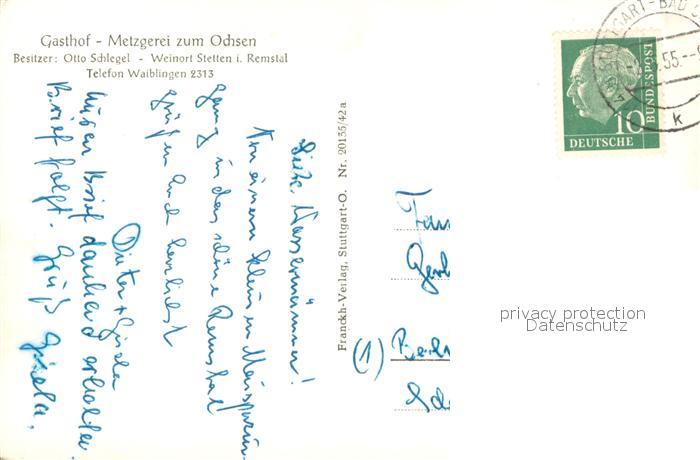 Gasthof - Metzgerei zum Ochsen
Besitzer: Otto Schlegel - Weinort Stetten i. Remstal
Telefon Waiblingen 2313
Liebe Wassermänner!
Von einem kleinen
gang in das schöne Remstal
grüßen Euch herzlichst
Dieter + Gisela
Brief dankend erhalten
Brief folgt. Gruß Gisela.
Franckh-Verlag, Stuttgart-O. Nr. 20135/42a
STUTTGART-BAD
55
k
10
BUNDESPOST
DEUTSCHE
(1)
privacy protection
Datenschutz